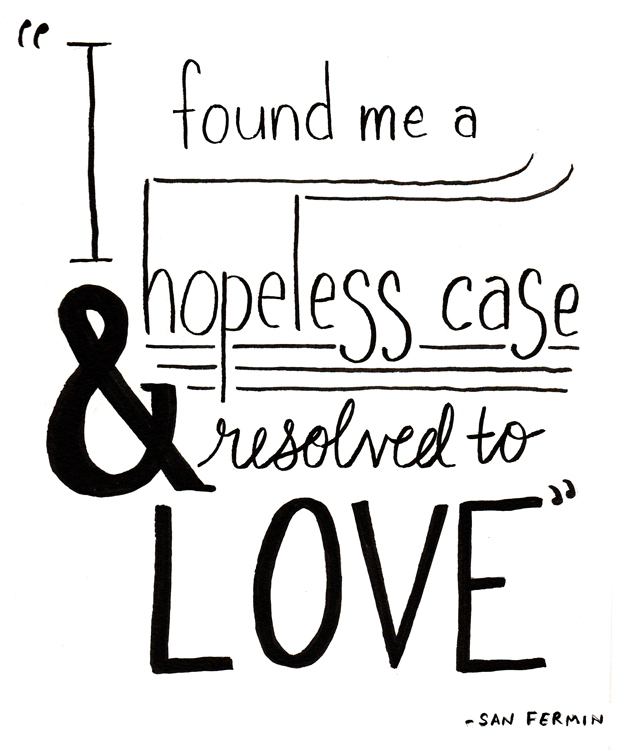 “I found me a
hopeless case
& resolved to
LOVE”
-SAN FERMIN